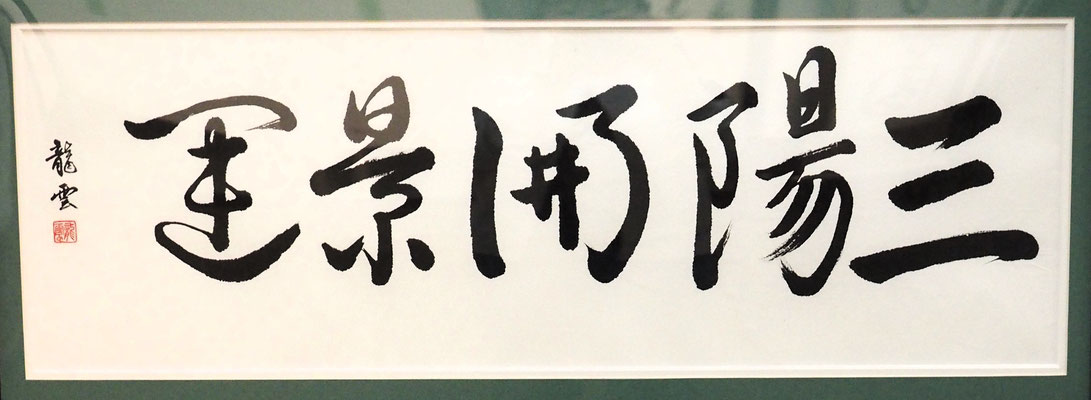 三陽開景運
龍雲